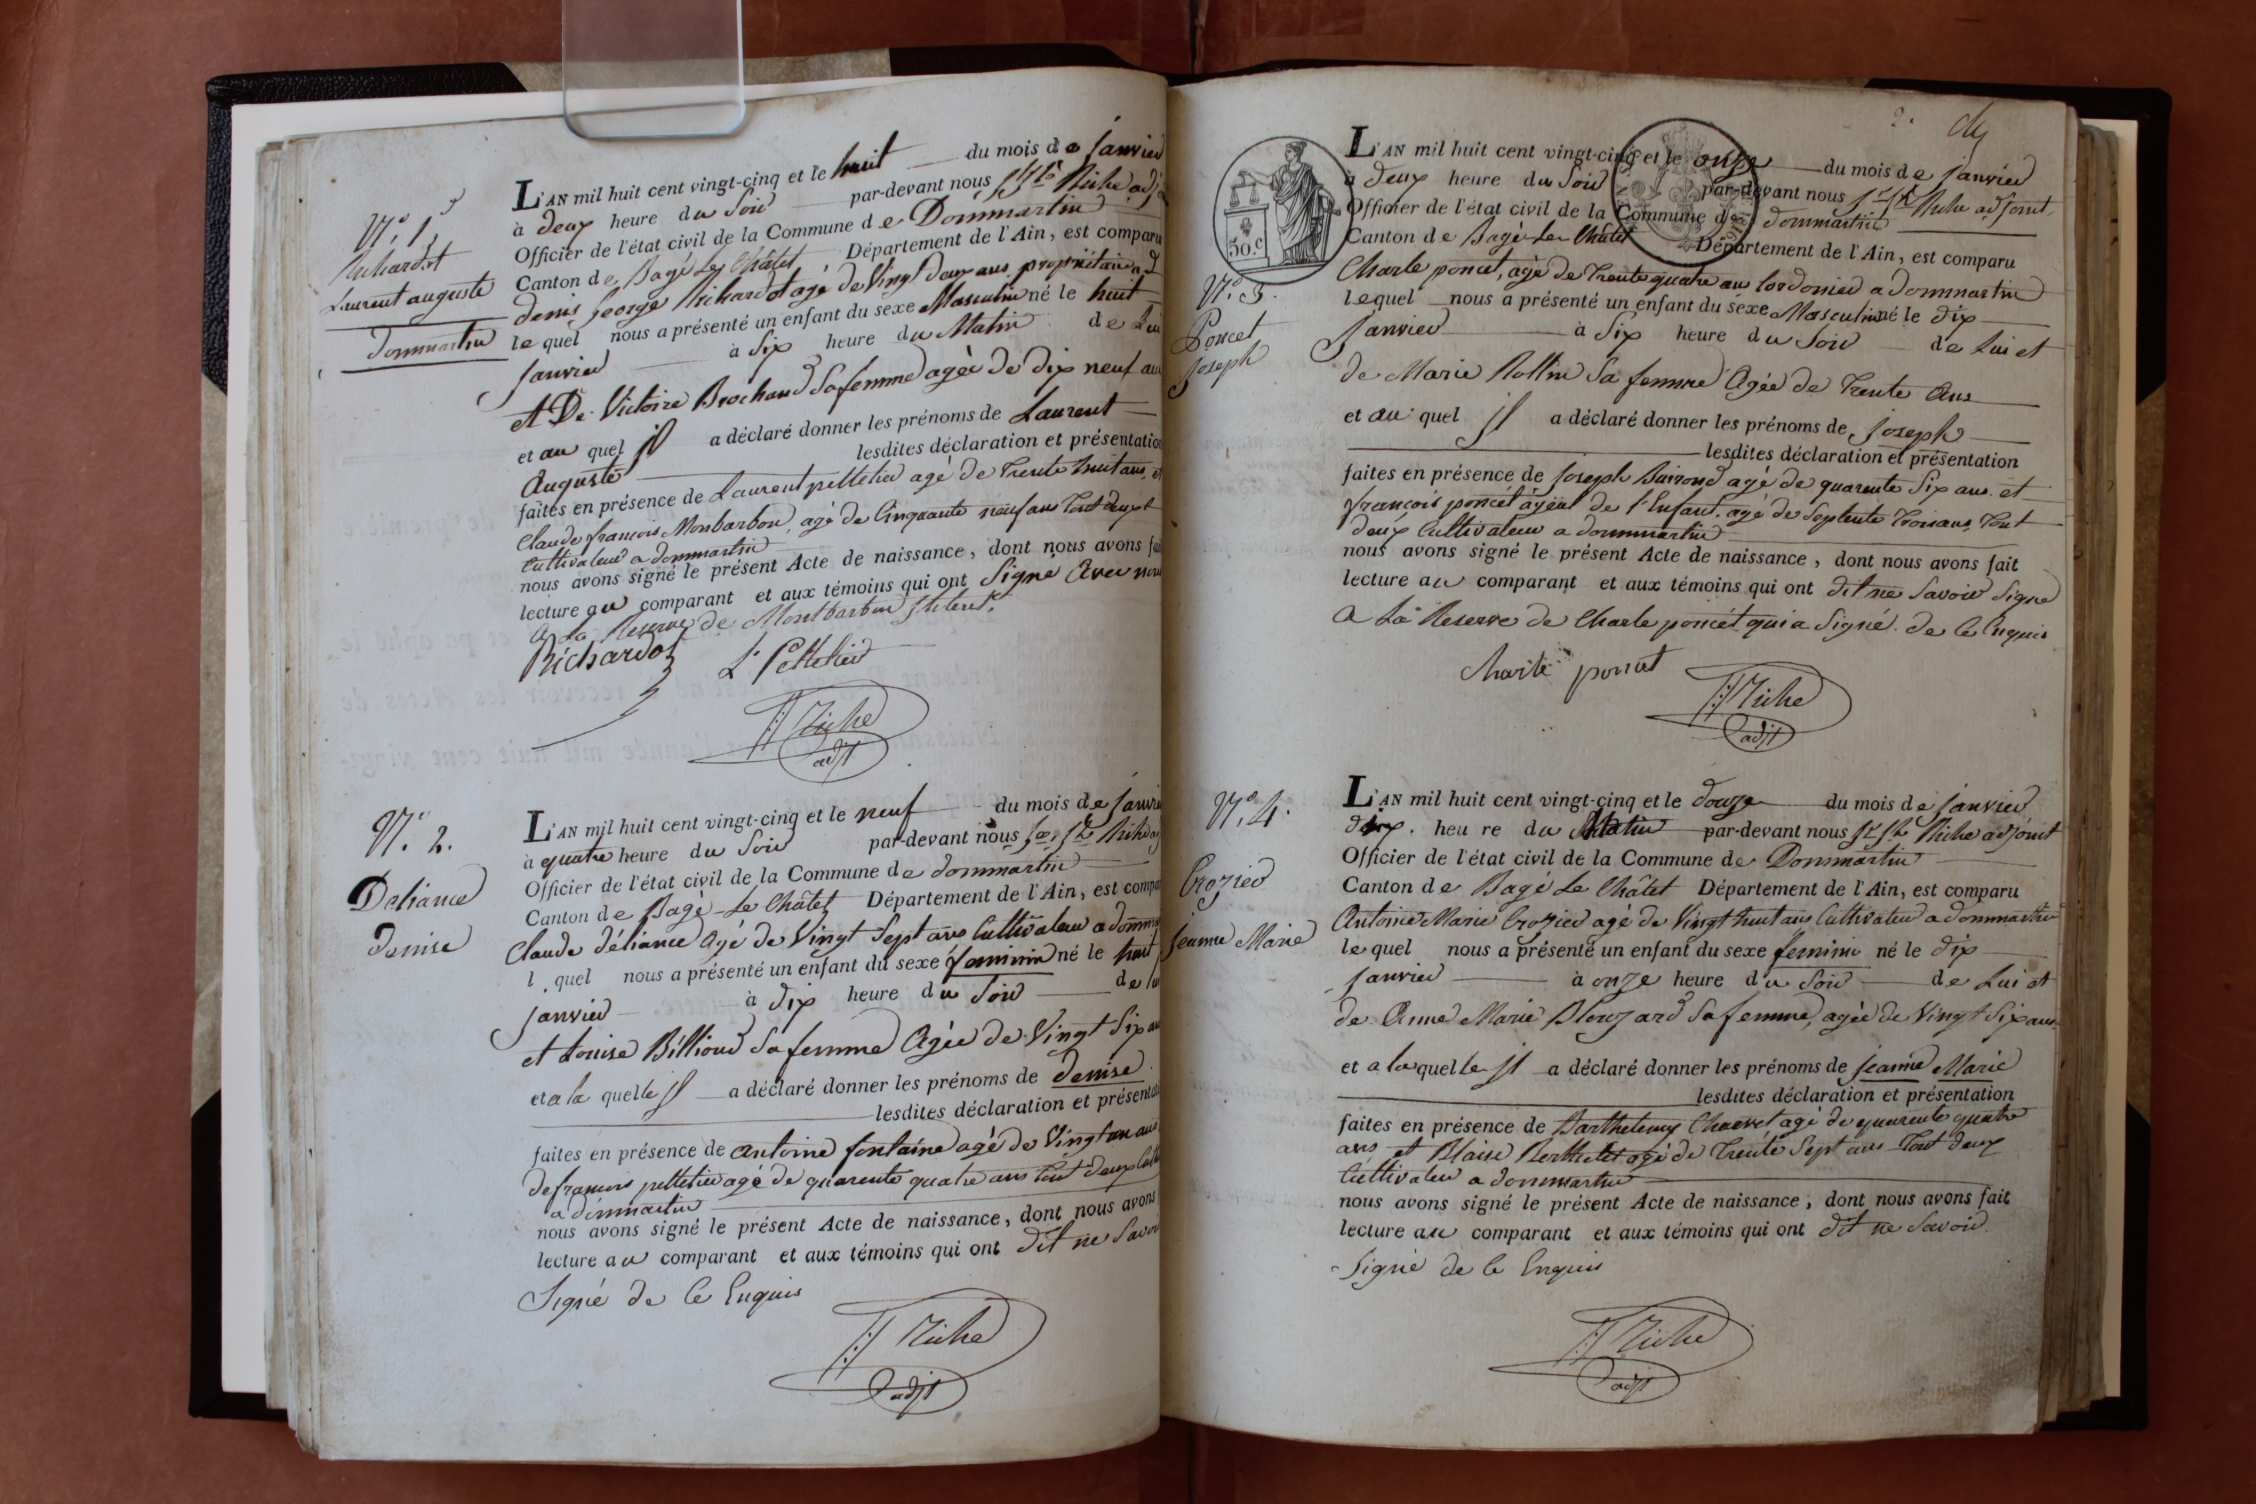 N.° 1.
Richardot
Laurent auguste
Dommartin
L'AN mil huit cent vingt-cinq et le huit du mois de janvier
à deux heure du Soir par-devant nous Riche adj
Officier de l'état civil de la Commune de Dommartin
Canton de Bagé Le Châtel Département de l'Ain, est comparu
denis George Richardot agé de Vingt deux ans propriétaire a d
le quel nous a présenté un enfant du sexe Masculin né le huit
janvier à Six heure du Matin de Lui
et De Victoire Brochand Sa femme agée de dix neuf an
et au quel jl a déclaré donner les prénoms de Laurent
Auguste lesdites déclaration et présentation
faites en présence de Laurent pelletier agé de Trente huit ans et
Claude francois Monbarbon, agé de Cinquante neuf ans Tout deux
Cultivateur a dommartin
nous avons signé le présent Acte de naissance, dont nous avons fai
lecture au comparant et aux témoins qui ont Signé Avec nous
a La Reserve de Montbarbon
Richardot L. Pelletier
Riche
adjt
N.° 2.
Deliance
Denise
L'AN mil huit cent vingt-cinq et le neuf du mois de janvie
à quatre heure du Soir par-devant nous Riche adj
Officier de l'état civil de la Commune de dommartin
Canton de Bagé-Le Châtel Département de l'Ain, est compa
Claude déliance Agé de Vingt Sept ans Cultivateur a domm
l quel nous a présenté un enfant du sexe feminin né le huit
janvier à dix heure du Soir de lu
et Louise Billioud Sa femme Agée de Vingt Six an
et a la quelle jl a déclaré donner les prénoms de Denise
lesdites déclaration et présentat
faites en présence de antoine fontaine agé de Vingt un ans
de francois pelletier agé de quarente quatre ans Tout deux Cult
a dommartin
nous avons signé le présent Acte de naissance, dont nous avons
lecture au comparant et aux témoins qui ont dit ne Savoir
Signé de Ce Enquis
Riche
adjt
2.
50.c
N.° 3.
Poncet
Joseph
L'AN mil huit cent vingt-cinq et le onze du mois de janvier
à deux heure du Soir par-devant nous Riche adjoint
Officier de l'état civil de la Commune de dommartin
Canton de Bagé Le Châtel Département de l'Ain, est comparu
Charle poncet, agé de Trente quatre ans Cordonier a dommartin
lequel nous a présenté un enfant du sexe Masculin né le dix
Janvier à Six heure du Soir de Lui et
de Marie Rollin Sa femme Agée de Trente Ans
et au quel jl a déclaré donner les prénoms de joseph
lesdites déclaration et présentation
faites en présence de joseph agé de quarente Six ans et
françois poncet ayeul de l'Enfant agé de Septente Trois ans, Tout
deux Cultivateur a dommartin
nous avons signé le présent Acte de naissance, dont nous avons fait
lecture au comparant et aux témoins qui ont dit ne Savoir Signe
a La Reserve de Charle poncet qui a Signé. de Ce Enquis
Charle poncet
Riche
adjt
N.° 4.
Crozier
Jeanne Marie
L'AN mil huit cent vingt-cinq et le douze du mois de janvier
dix heure du Matin par-devant nous Riche adjoint
Officier de l'état civil de la Commune de Dommartin
Canton de Bagé Le Châtel Département de l'Ain, est comparu
Antoine Marie Crozier agé de Vingt huit ans Cultivateur a dommartin
le quel nous a présenté un enfant du sexe feminin né le dix
janvier à onze heure du Soir de Lui et
de Anne Marie Blouzard Sa femme, agée de Vingt Six ans
et a la quelle jl a déclaré donner les prénoms de jeanne Marie
lesdites déclaration et présentation
faites en présence de Barthelemy Chaevet agé de quarente quatre
ans et Blaise Berthelet agé de Trente Sept ans Tout deux
Cultivateur a dommartin
nous avons signé le présent Acte de naissance, dont nous avons fait
lecture au comparant et aux témoins qui ont dit ne Savoir
Signé de Ce Enquis
Riche
adjt